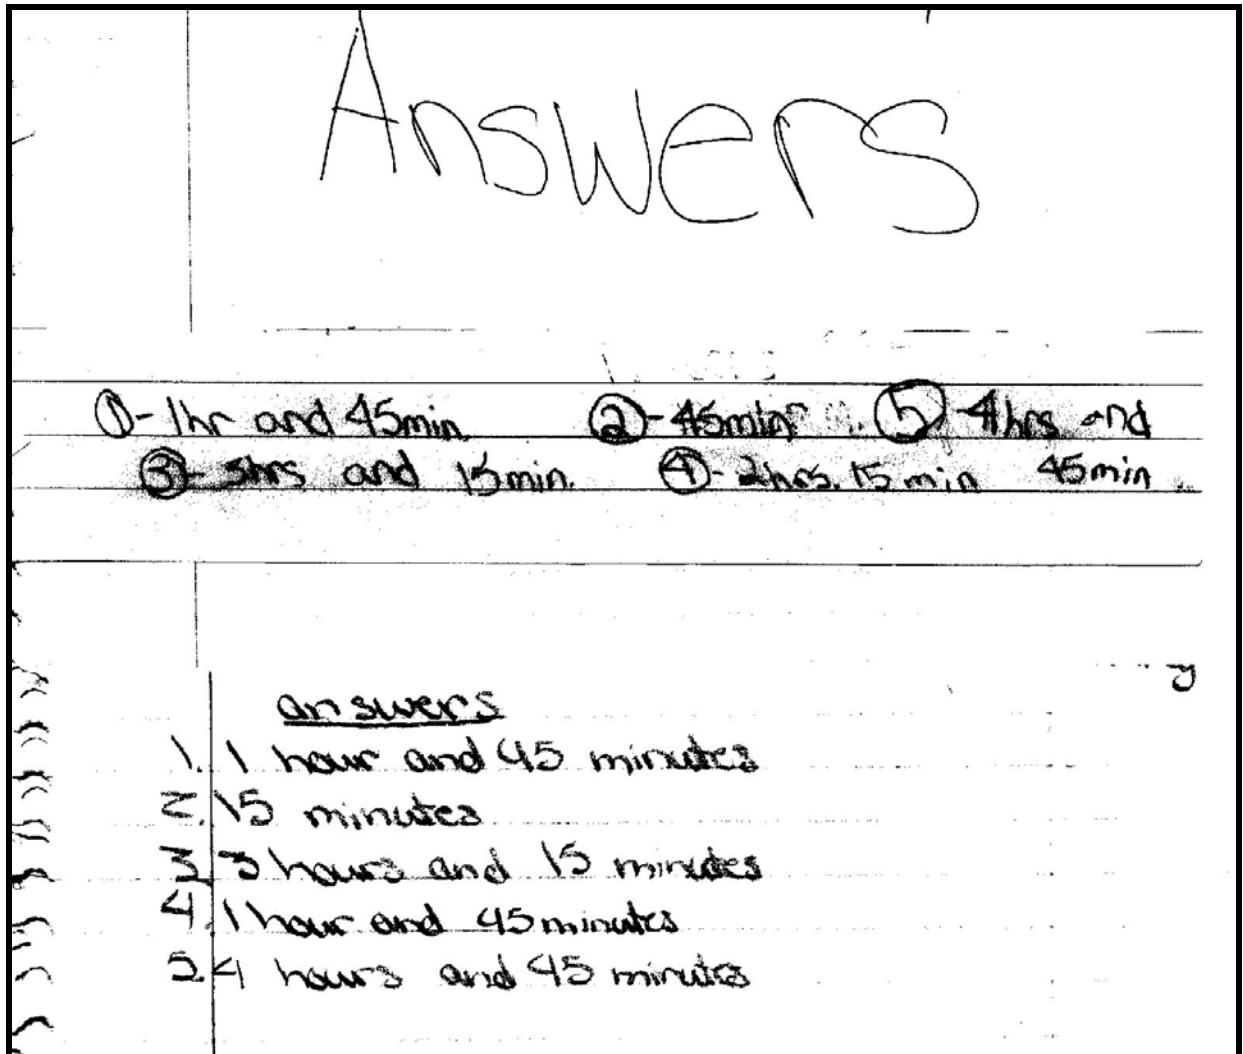 Answers
① - 1hr and 45min. ② - 45min ⑤ - 4hrs and
③ - 3hrs and 15min. ④ - 2hrs. 15 min 45min
answers
1. 1 hour and 45 minutes
2. 15 minutes
3 3 hours and 15 minutes
4. 1 hour and 45 minutes
5. 4 hours and 45 minutes